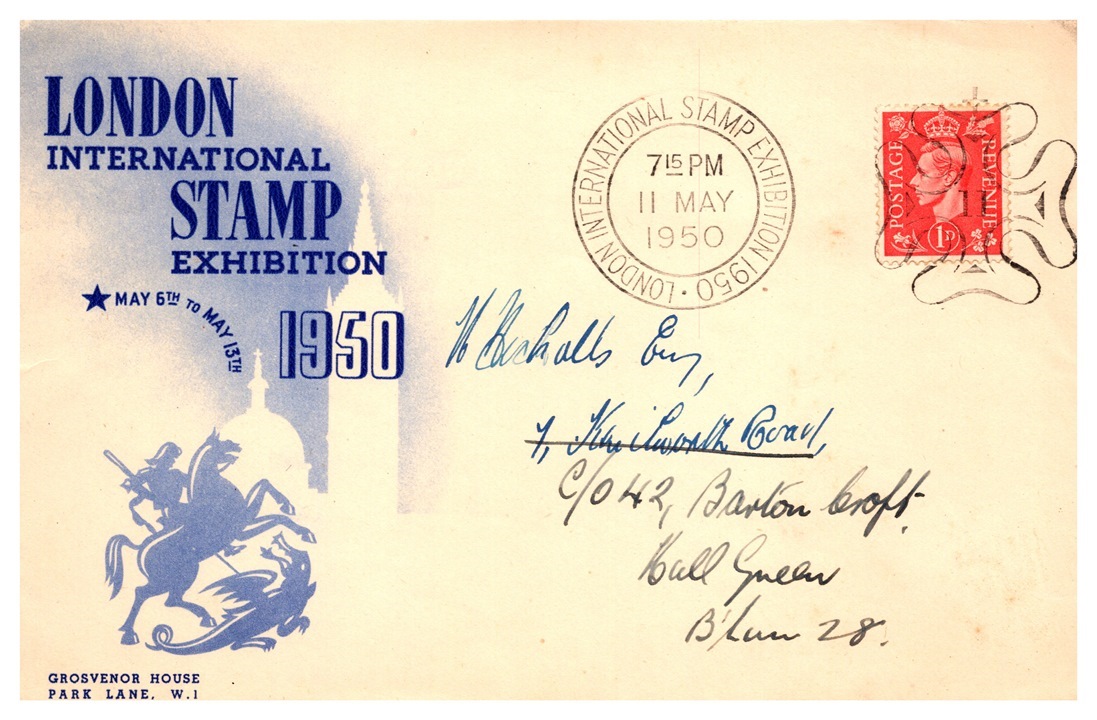 LONDON
INTERNATIONAL
STAMP
EXHIBITION
★ MAY 6TH TO MAY 13TH
1950
GROSVENOR HOUSE
PARK LANE, W.1
LONDON INTERNATIONAL STAMP EXHIBITION 1950 ·
7 15 PM
11 MAY
1950
POSTAGE
REVENUE
1D
11
Esq,
Kenilworth Road,
C/O 42, Barton Croft.
Hall Green
B'ham 28.